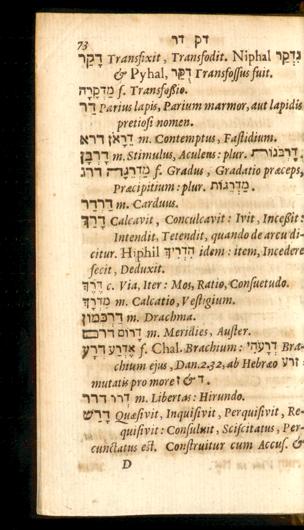 דק דר
73
דָּקַר Transfixit, Transfodit. Niphal נִדְקַר
& Pyhal, דֻקַּר Transfossus fuit.
מַדְקֵרָה f. Transfossio.
דַּר Parius lapis, Parium marmor, aut lapidis
pretiosi nomen.
דרא דֵּרָאוֹן m. Contemptus, Fastidium.
דָּרְבָן m. Stimulus, Aculeus: plur. דָּרְבֹנוֹת.
דרג מַדְרֵגָה f. Gradus, Gradatio præceps,
Præcipitium: plur. מַדְרֵגוֹת.
דַּרְדַּר m. Carduus.
דָּרַךְ Calcavit, Conculcavit: Ivit, Incessit:
Intendit, Tetendit, quando de arcu di-
citur. Hiphil הִדְרִיךְ idem: item, Incedere
fecit, Deduxit.
דֶּרֶךְ c. Via, Iter: Mos, Ratio, Consuetudo.
מִדְרָךְ m. Calcatio, Vestigium.
דַּרְכְּמוֹן m. Drachma.
דרם דָּרוֹם m. Meridies, Auster.
דרע אֶדְרָע f. Chal. Brachium: דְּרָעֹהִי Bra-
chium ejus, Dan. 2. 32, ab Hebræo זרע:
mutatis pro more ז & ד.
דרר דְּרוֹר m. Libertas: Hirundo.
דָּרַשׁ Quæsivit, Inquisivit, Perquisivit, Re-
quisivit: Consuluit, Sciscitatus, Per-
cunctatus est. Construitur cum Accus. &
D